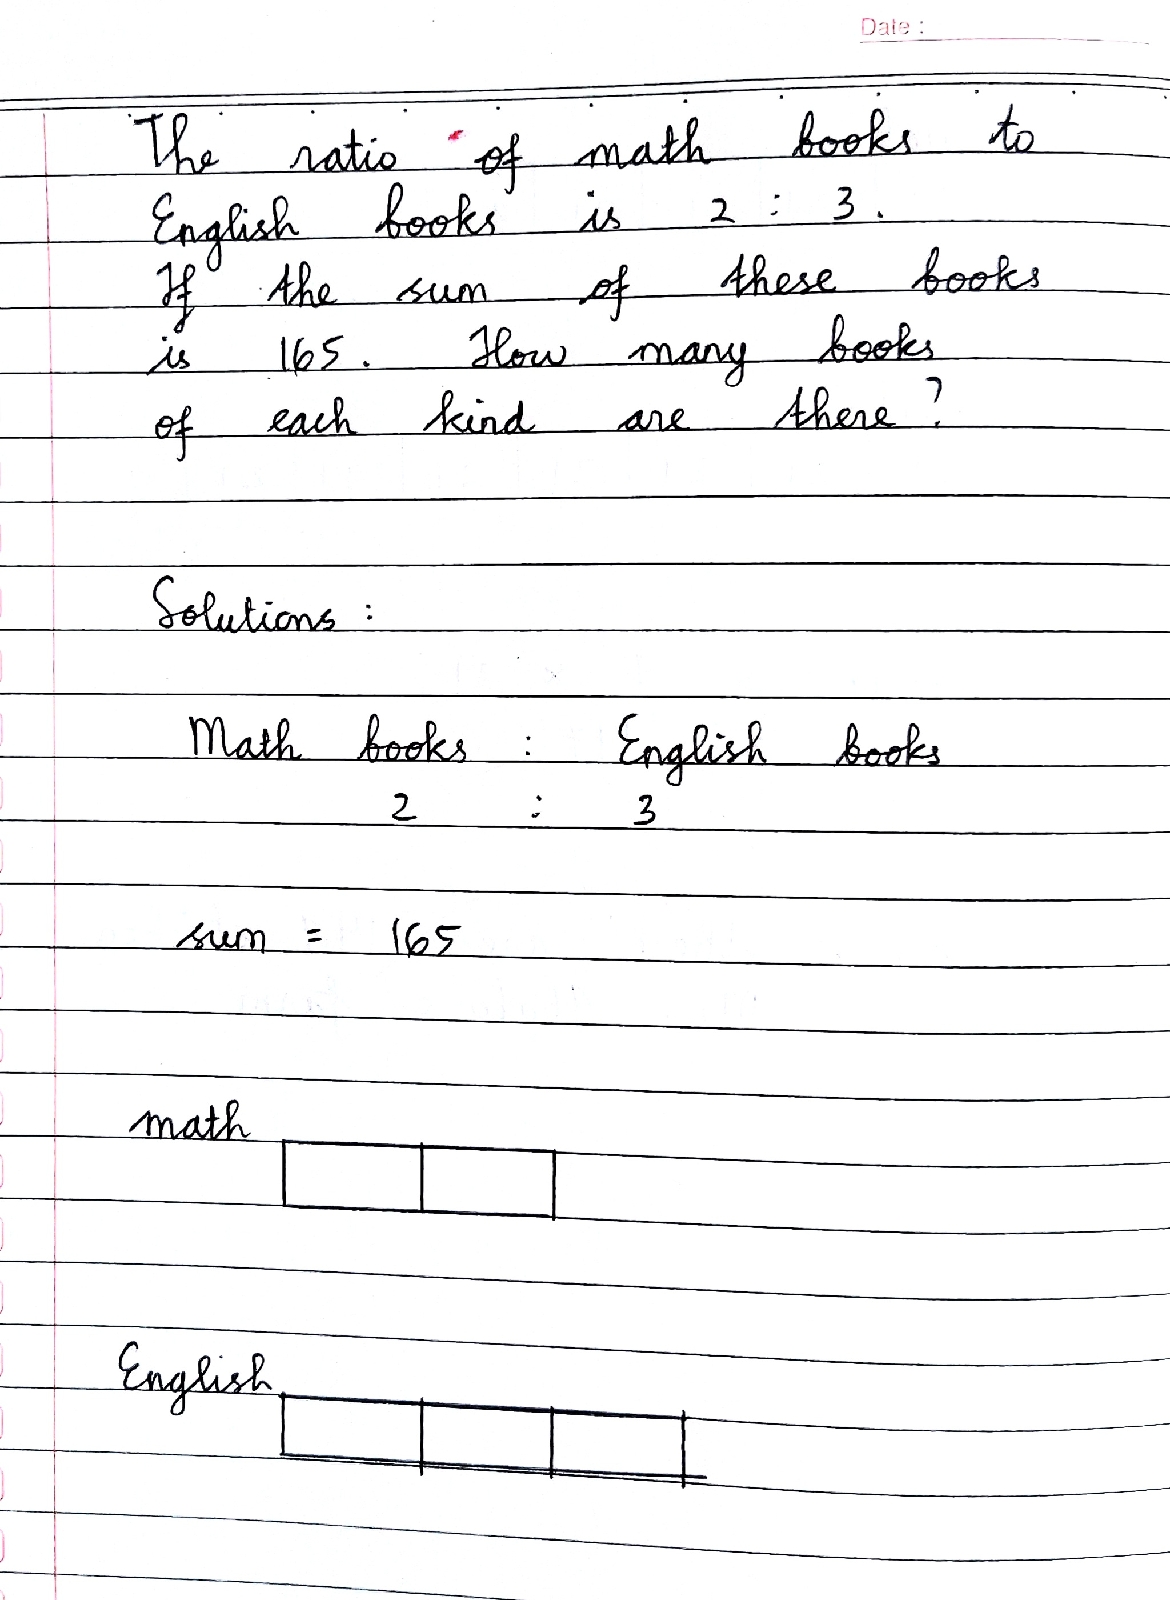 Date :
The ratio of math books to
English books is 2 : 3.
If the sum of these books
is 165. How many books
of each kind are there?
Solutions :
Math books : English books
2 : 3
sum = 165
math
English